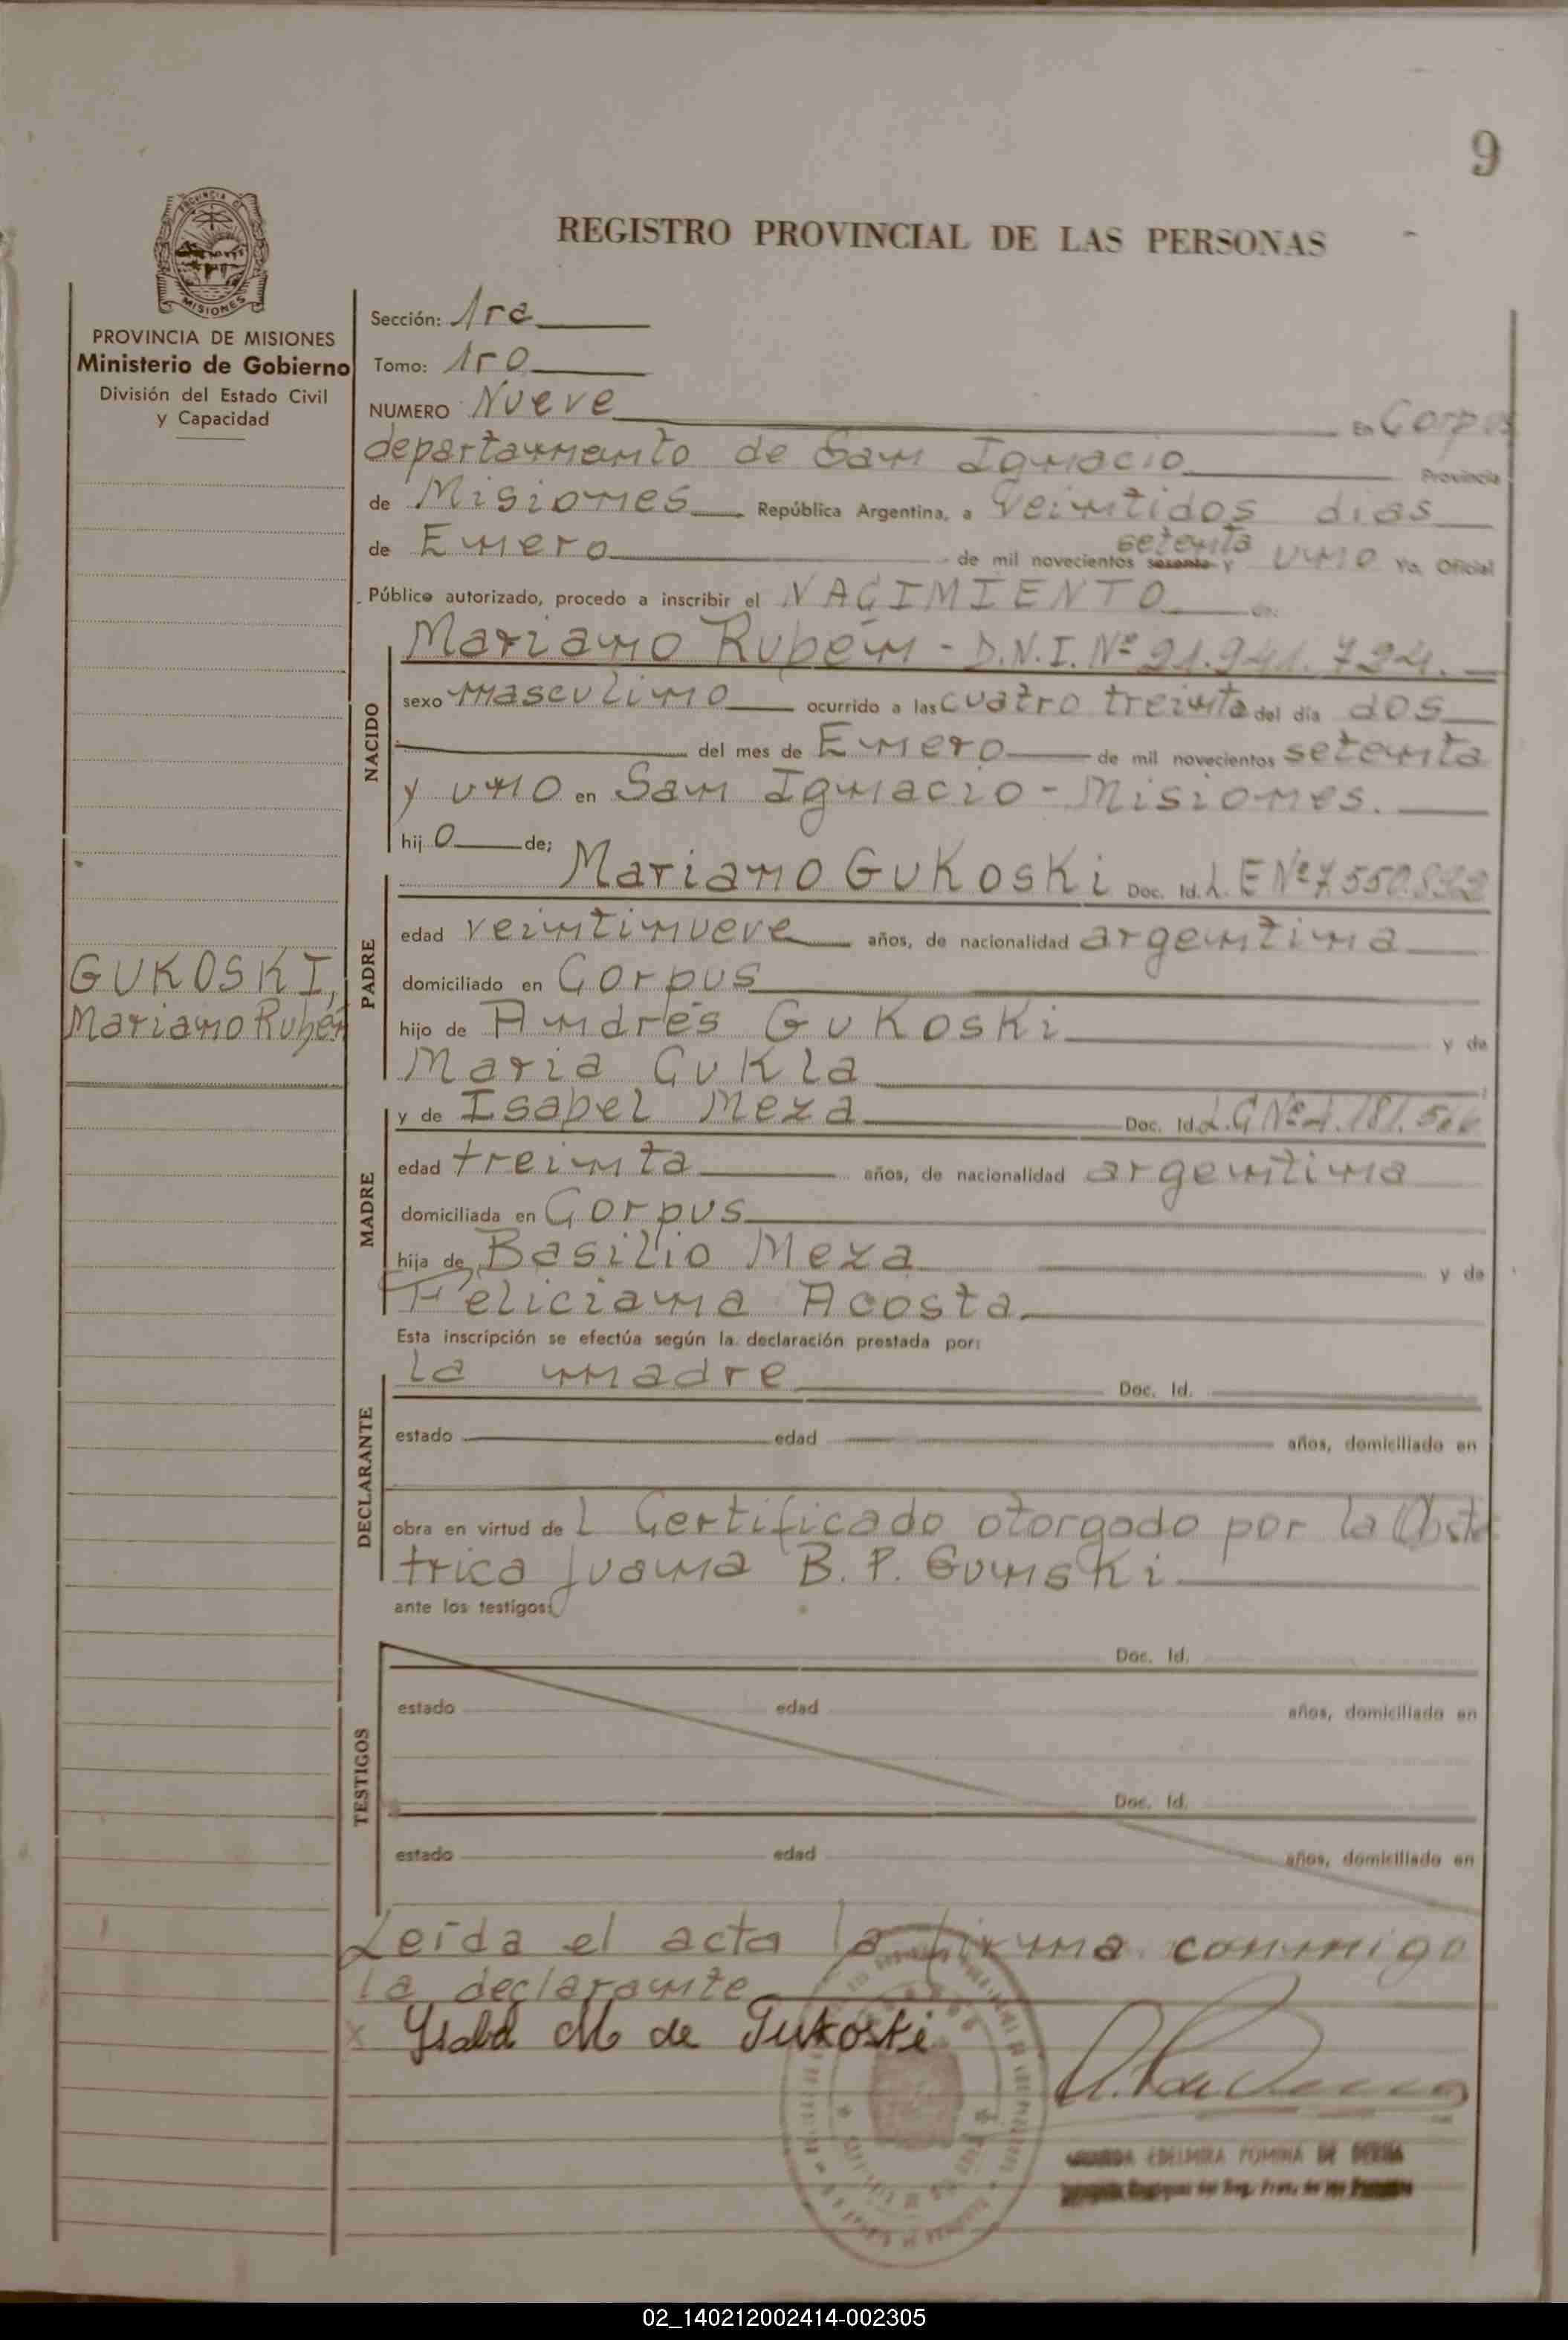 9
REGISTRO PROVINCIAL DE LAS PERSONAS
PROVINCIA DE MISIONES
Ministerio de Gobierno
División del Estado Civil
y Capacidad
Sección: 1ra
Tomo: 1ro
NUMERO Nueve En Corpus
departamento de San Ignacio Provincia
de Misiones República Argentina, a Veintidos dias
de Enero de mil novecientos setenta sesenta y uno Yo, Oficial
Público autorizado, procedo a inscribir el NACIMIENTO de:
NACIDO
Mariano Rubén - D.N.I. Nº 21.941.724.
sexo masculino ocurrido a las cuatro treinta del día dos
del mes de Enero de mil novecientos setenta
y uno en San Ignacio - Misiones.
hij o de;
PADRE
Mariano Gukoski Doc. Id. L.E Nº 7.550.892
edad veintinueve años, de nacionalidad argentina
domiciliado en Corpus
hijo de Andrés Gukoski y de
Maria Gukla
GUKOSKI,
Mariano Rubén
MADRE
y de Isabel Meza Doc. Id. L.C Nº
edad treinta años, de nacionalidad argentina
domiciliada en Corpus
hija de Basilio Meza y de
Feliciana Acosta
Esta inscripción se efectúa según la declaración prestada por:
DECLARANTE
la madre Doc. Id.
estado edad años, domiciliado en
obra en virtud de l Certificado otorgado por la Obste
trica Juana B. P. Gunski
ante los testigos:
TESTIGOS
Doc. Id.
estado edad años, domiciliado en
Doc. Id.
estado edad años, domiciliado en
Leída el acta la firma conmigo
la declarante
x Ysabel M de Gukoski
EDELMIRA ROMINA DE
02_140212002414-002305